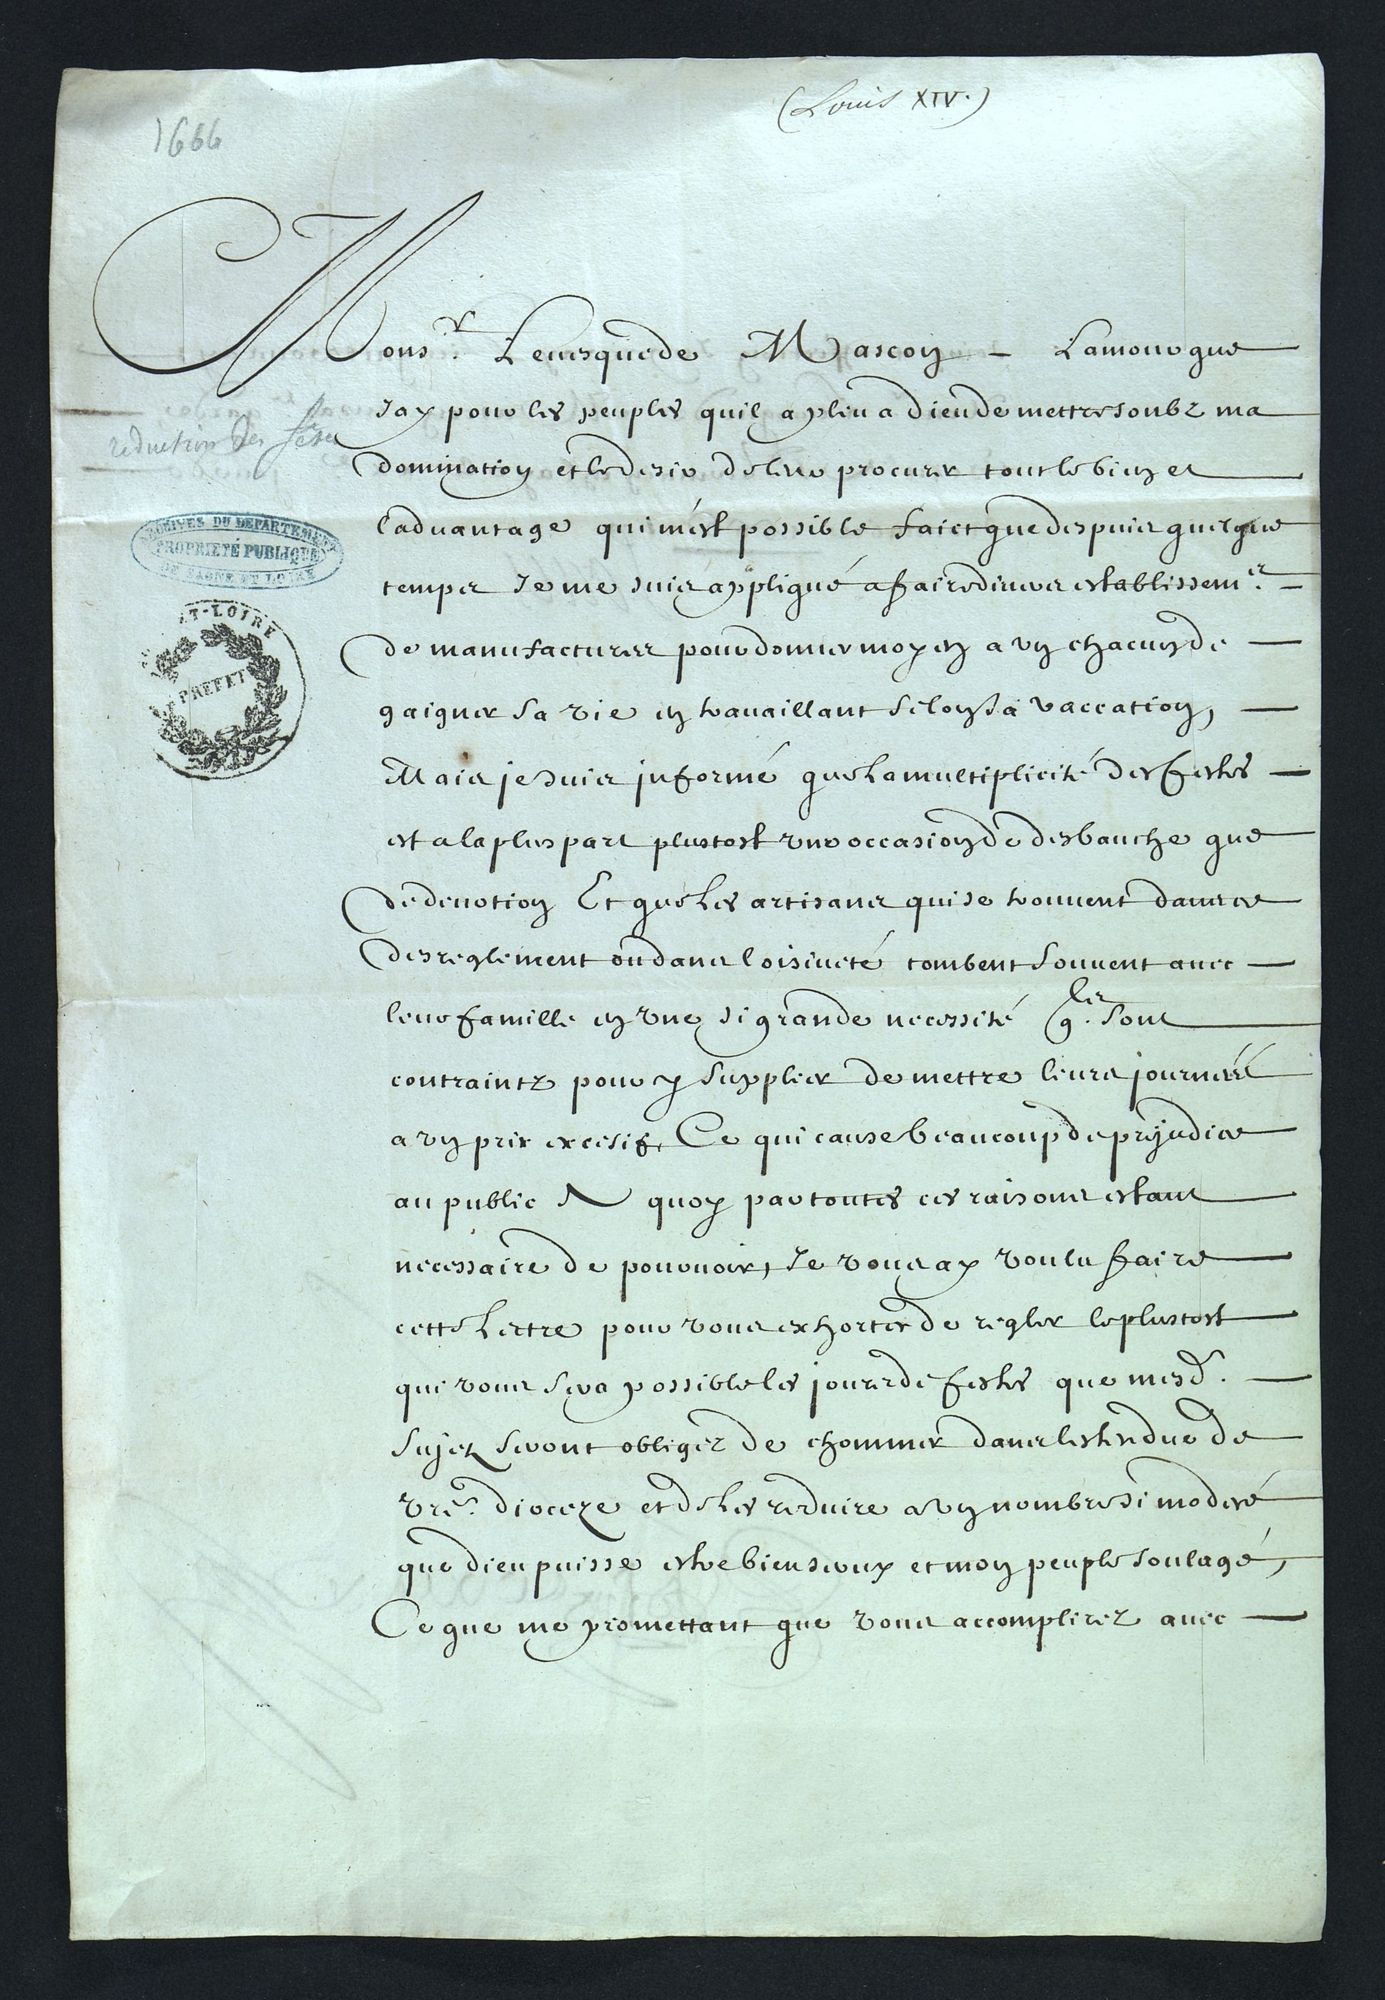 (Louis XIV.)
1666
Mons.r Leuesque de Mascon – Lamour que
Jay pour les peuples quil a pleu a dieu de mettre soubz ma
reduction des fêtes
domination et le desir de leur procurer tout le bien et
laduantage qui m'est possible faict que despuis quelque
temps Je me suis appliqué a faire diuers establissem.ts
de manufactures pour donner moyen a vn chacun de
gaigner sa vie en trauaillant selon sa vaccation,
Mais je suis informé que la multiplicité des festes
est a la plus part plustost vne occasion de desbauche que
de deuotion Et que les artisans qui se trouuent dans ce
desreglement ou dans loisiueté tombent souuent auec
leur famille en vne si grande necessité qls. sont
contraintz pour y supplier de mettre leurs journées
a vn prix excesif, Ce qui cause beaucoup de prejudice
au public A quoy par toutes ces raisons estant
necessaire de pouruoir, Je vous ay voulu faire
cette lettre pour vous exhorter de regler le plustost
qui vous sera possible les jours de festes que mesd.
sujez seront obligez de chommer dans lestendue de
vre. dioceze et de les reduire a vn nombre si moderé
que dieu puisse estre bien seruy et mon peuple soulagé,
Ce que me promettant que vous accomplirez auec
ARCHIVES DU DEPARTEMENT
PROPRIETÉ PUBLIQUE
DE SAONE ET LOIRE
ET-LOIRE
PREFET